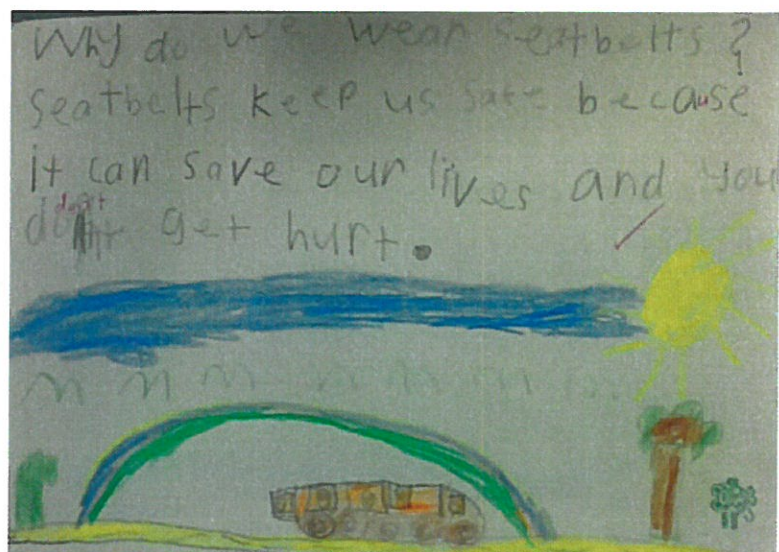 Why do we wear seatbelts?
seatbelts keep us safe because
it can save our lives and you
don't get hurt.